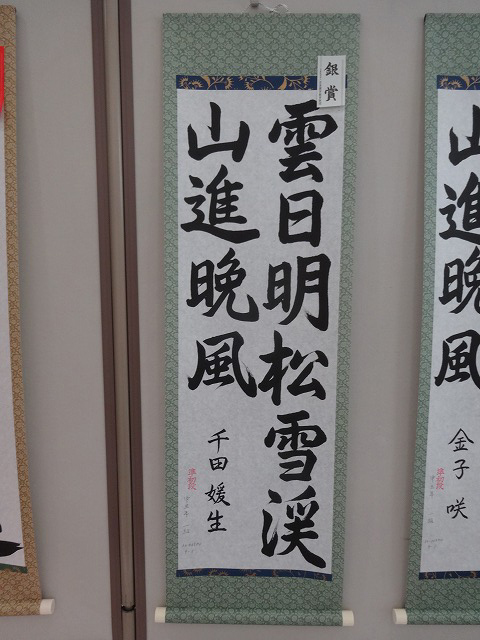 銀賞
雲日明松雪渓
山進晩風
千田媛生
準初段
山進晩風
金子咲